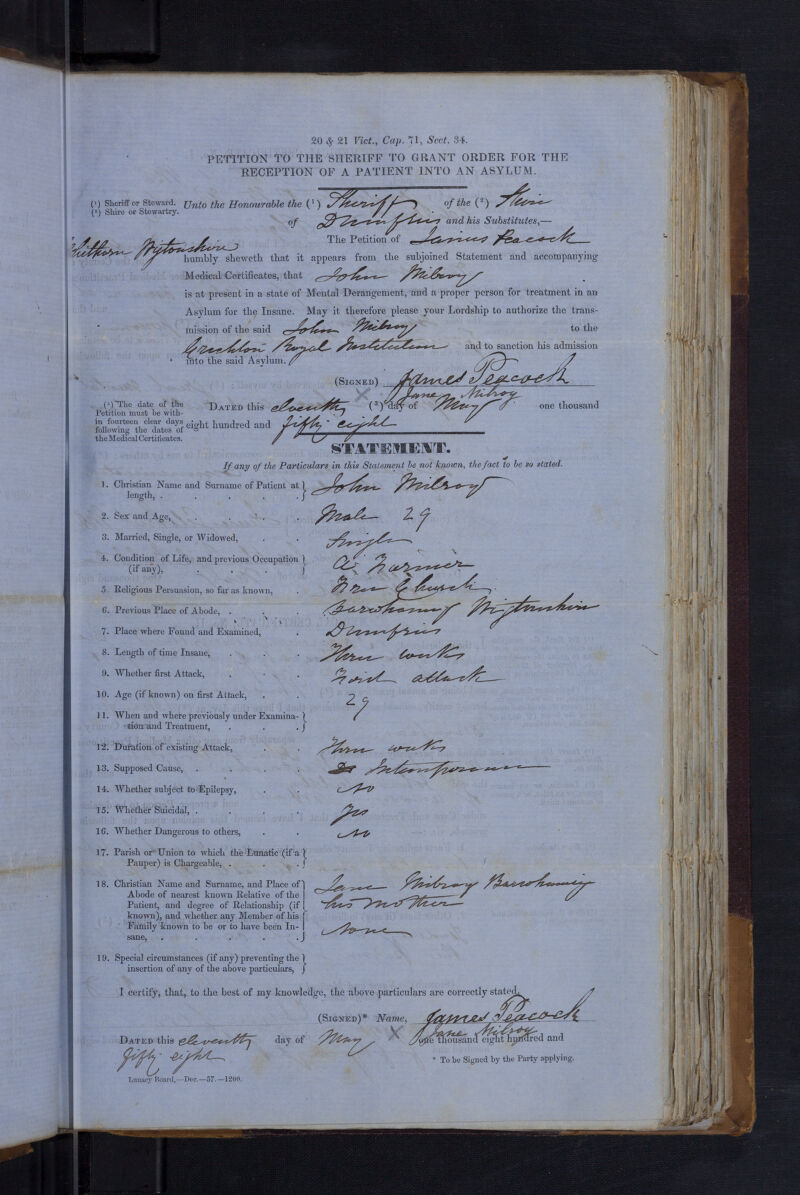 20 & 21 Vict., Cap. 71, Sect. 34.
PETITION TO THE SHERIFF TO GRANT ORDER FOR THE
RECEPTION OF A PATIENT INTO AN ASYLUM.
(¹) Sheriff or Steward.
(²) Shire or Stewartry.
Unto the Honourable the (¹) Sheriff of the (²) Shire
of Dumfries and his Substitutes,—
The Petition of James Peacock
Whithorn Wigtonshire
humbly sheweth that it appears from the subjoined Statement and accompanying
Medical Certificates, that John Milroy
is at present in a state of Mental Derangement, and a proper person for treatment in an
Asylum for the Insane. May it therefore please your Lordship to authorize the trans-
mission of the said John Milroy to the
Crichton Royal Institution and to sanction his admission
into the said Asylum.
(SIGNED) James Peacock
× Jane Milroy
(³) The date of the
Petition must be with-
in fourteen clear days
following the dates of
the Medical Certificates.
DATED this eleventh (³) day of May one thousand
eight hundred and fifty eight
STATEMENT.
If any of the Particulars in this Statement be not known, the fact to be so stated.
1. Christian Name and Surname of Patient at length, . John Milroy
2. Sex and Age, Male 29
3. Married, Single, or Widowed, Single
4. Condition of Life, and previous Occupation (if any), A Farmer
5. Religious Persuasion, so far as known, Free Church
6. Previous Place of Abode, . Barwhanny Wigtonshire
7. Place where Found and Examined, Dumfries
8. Length of time Insane, Three weeks
9. Whether first Attack, First attack
10. Age (if known) on first Attack, 29
11. When and where previously under Examina-
tion and Treatment,
12. Duration of existing Attack, Three weeks
13. Supposed Cause, . Intemperance
14. Whether subject to Epilepsy, No
15. Whether Suicidal, . Yes
16. Whether Dangerous to others, No
17. Parish or Union to which the Lunatic (if a
Pauper) is Chargeable, .
18. Christian Name and Surname, and Place of Jane Milroy Barwhanny
Abode of nearest known Relative of the his mother
Patient, and degree of Relationship (if
known), and whether any Member of his
Family known to be or to have been In- None
sane, .
19. Special circumstances (if any) preventing the
insertion of any of the above particulars,
I certify, that, to the best of my knowledge, the above particulars are correctly stated.
(SIGNED)* Name, James Peacock
× Jane Milroy
DATED this eleventh day of May one thousand eight hundred and
fifty eight
* To be Signed by the Party applying.
Lunacy Board,—Dec.—57.—1200.